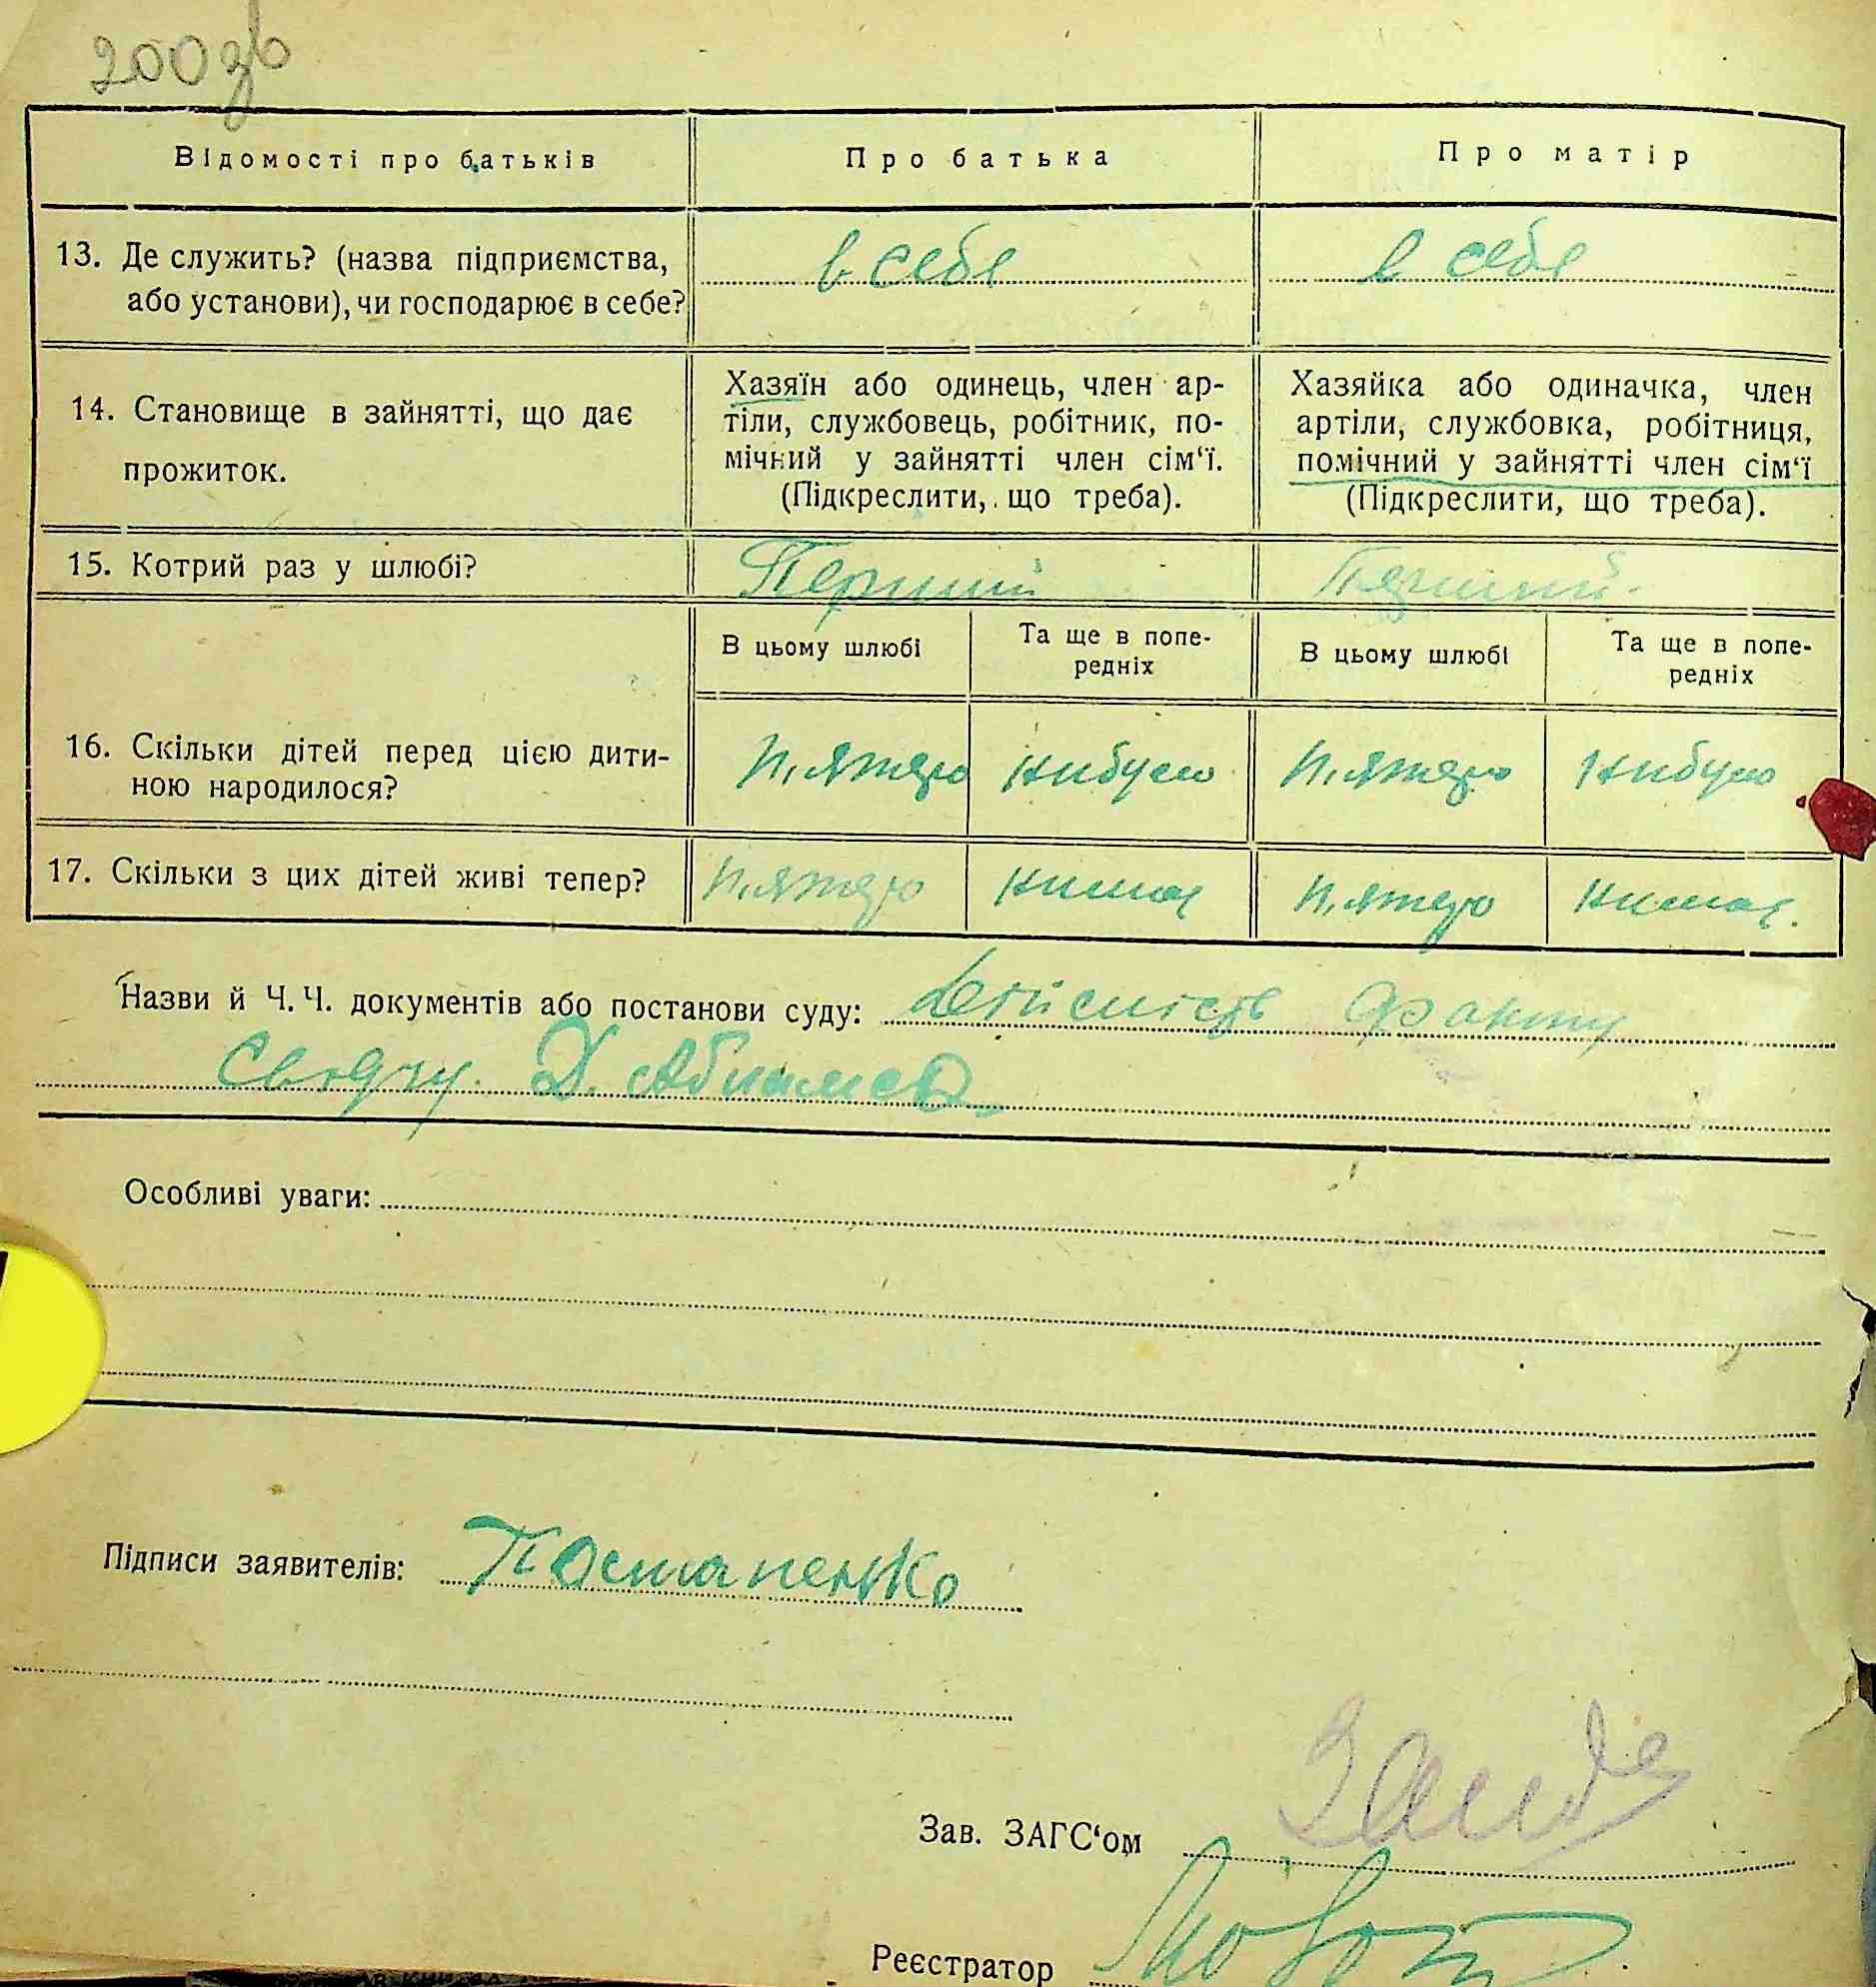 200 зв
Відомості про батьків
Про батька
Про матір
13. Де служить? (назва підприємства,
або установи), чи господарює в себе?
в себе
в себе
14. Становище в зайнятті, що дає
прожиток.
Хазяїн або одинець, член ар-
тіли, службовець, робітник, по-
мічний у зайнятті член сім‘ї.
(Підкреслити, що треба).
Хазяйка або одиначка, член
артіли, службовка, робітниця,
помічний у зайнятті член сім‘ї
(Підкреслити, що треба).
15. Котрий раз у шлюбі?
Перший
Перший.
В цьому шлюбі
Та ще в попе-
редніх
В цьому шлюбі
Та ще в попе-
редніх
16. Скільки дітей перед цією дити-
ною народилося?
П,ятеро
нибуло
П,ятеро
нибуло
17. Скільки з цих дітей живі тепер?
П,ятеро
нимає
П,ятеро
нимає.
Назви й Ч. Ч. документів або постанови суду:
факту
Свідчу. Д.
Особливі уваги:
Підписи заявителів: Постапенко
Зав. ЗАГС‘ом
Реєстратор